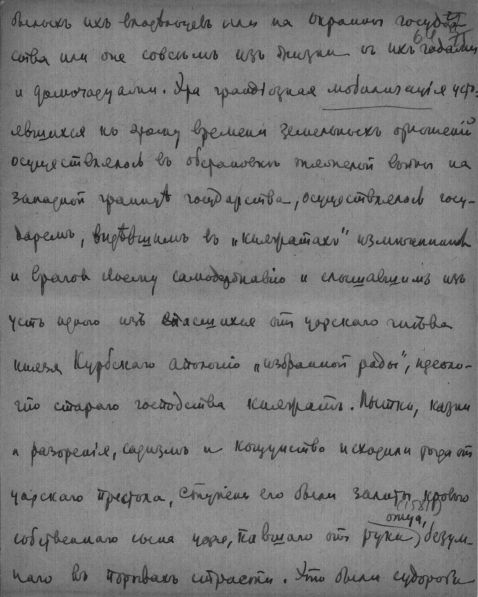 бывшихъ ихъ владѣльцевъ или на окраины государ-
ства или они совсѣмъ изъ жизни съ ихъ чадами
и домочадцами. Эта грандіозная мобилизація усто-
явшихся къ этому времени земельныхъ отношеній
осуществлялась въ обстановкѣ тяжелой войны на
западной границѣ государства, осуществлялась госу-
даремъ, видѣвшимъ въ „княжатахъ“ измѣнниковъ
и враговъ своему самодержавію и слышавшимъ изъ
устъ одного изъ спасшихся отъ царскаго гнѣва
князя Курбскаго апологію „избранной рады“, идеоло-
гію стараго господства княжатъ. Пытки, казни
и разоренія, садизмъ и кощунство исходили тогда отъ
царскаго престола, ступени его были залиты кровью
(1581)
собственнаго сына царя, павшаго отъ руки отца, безум-
наго въ порывахъ страсти. Это были судороги